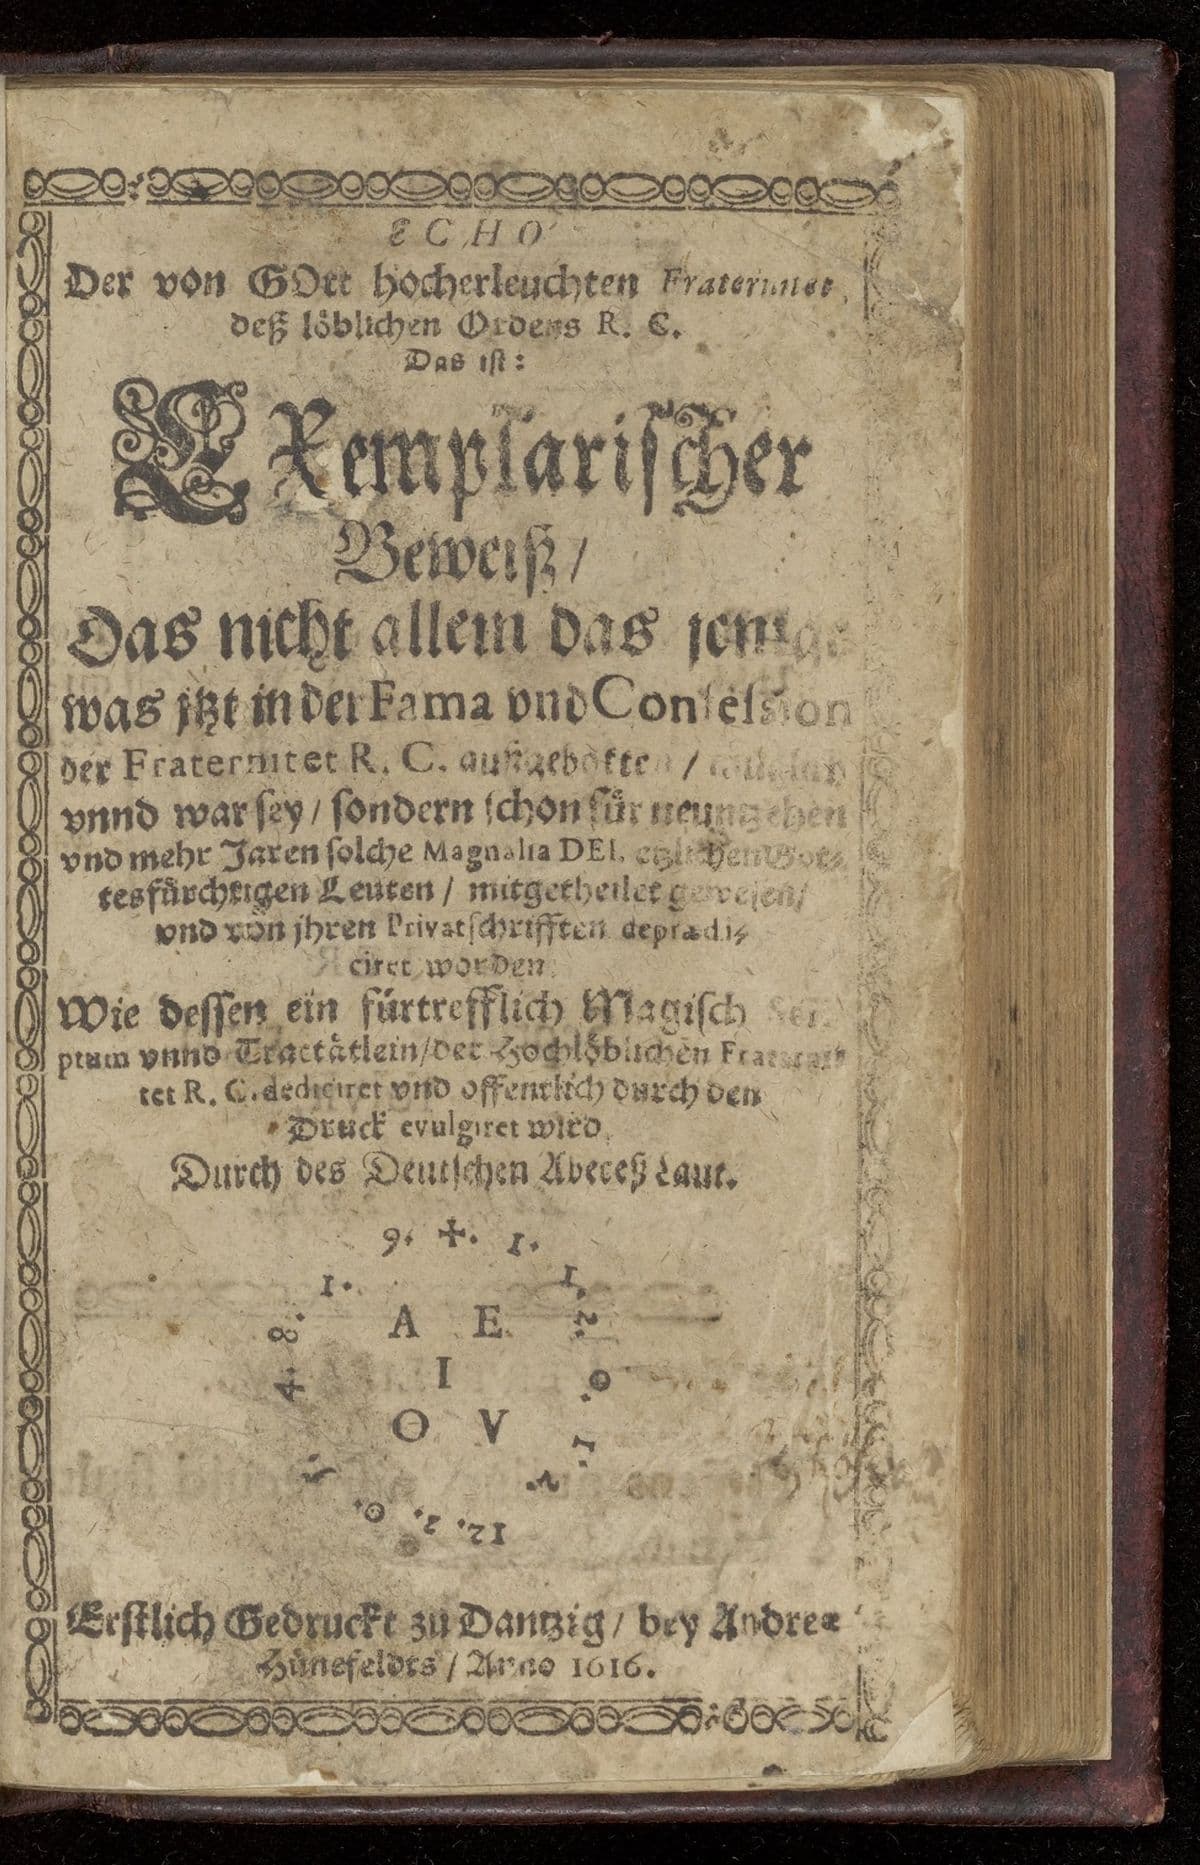 ECHO
Der von GOtt hocherleuchten Fraternitet
deß löblichen Ordens R. C.
Das ist:
EXemplarischer
Beweiß /
Das nicht allein das jenige
was jtzt in der Fama vnd Confession
der Fraternitet R. C. außgebotten /
vnnd war sey / sondern schon für neuntzehen
vnd mehr Jaren solche Magnalia DEI, etzlichen Got-
tesfürchtigen Leuten / mitgetheilet gewesen /
vnd von jhren Privatschrifften deprædi-
ciret worden.
Wie dessen ein fürtrefflich Magisch Scri-
ptum vnnd Tractätlein / der Hochlöblichen Fraterni-
tet R. C. dediciret vnd offentlich durch den
Druck evulgiret wird.
Durch des Deutschen Abeceß Laut.
9. +. 1.
1. 1.
8. A E 2.
4. I 0.
O V 1.
0. 2. 12.
Erstlich Gedruckt zu Dantzig / bey Andreæ
Hünefeldts / Anno 1616.